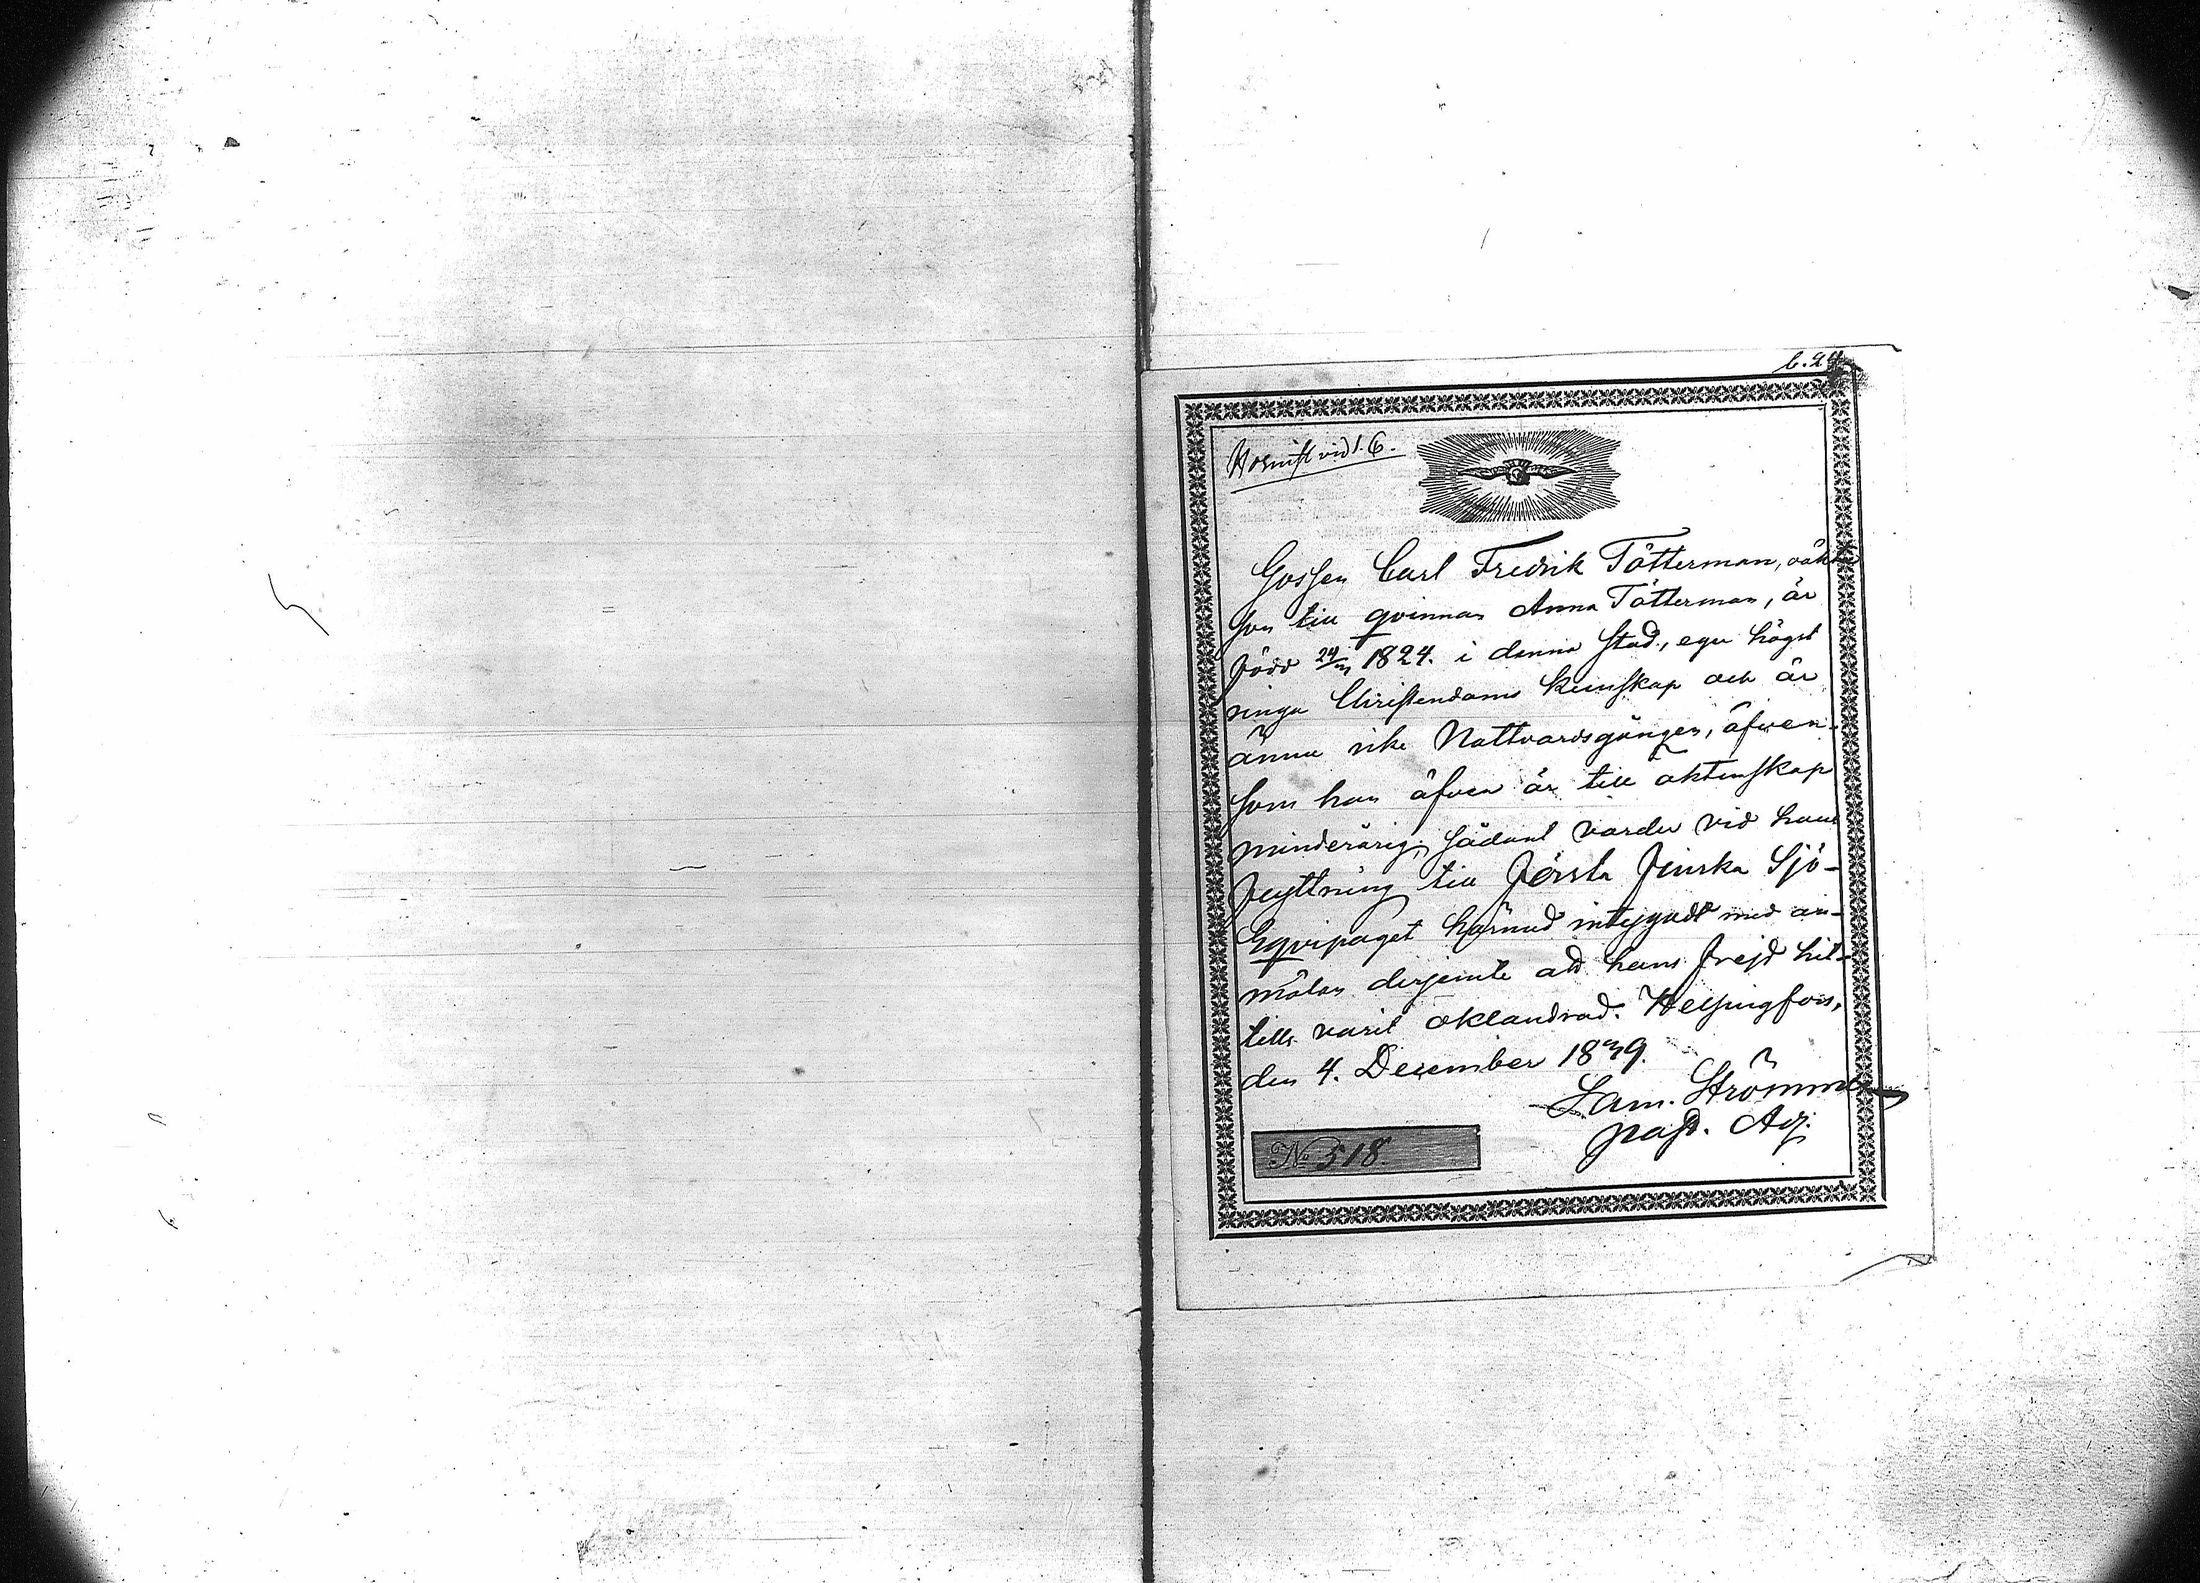 b. 24
vid 1. 6.
Gossen Carl Fredrik Tötterman, oäkta
son till qvinnan Anna Tötterman, är
född 24/m 1824. i denna Stad, eger högst
ringa Christendoms kunskap och är
ännu icke Nattvardsgången, äfven-
som han äfven är till äktenskap
minderårig; sådant varder vid hans
flyttning till Första Finska Sjö-
Eqvipaget härmed intygadt med an-
mälan derjemte att hans frejd hit-
tills varit oklandrad. Helsingfors,
den 4. December 1839.
Sam. Strömmer
past. Adj.
No 518.